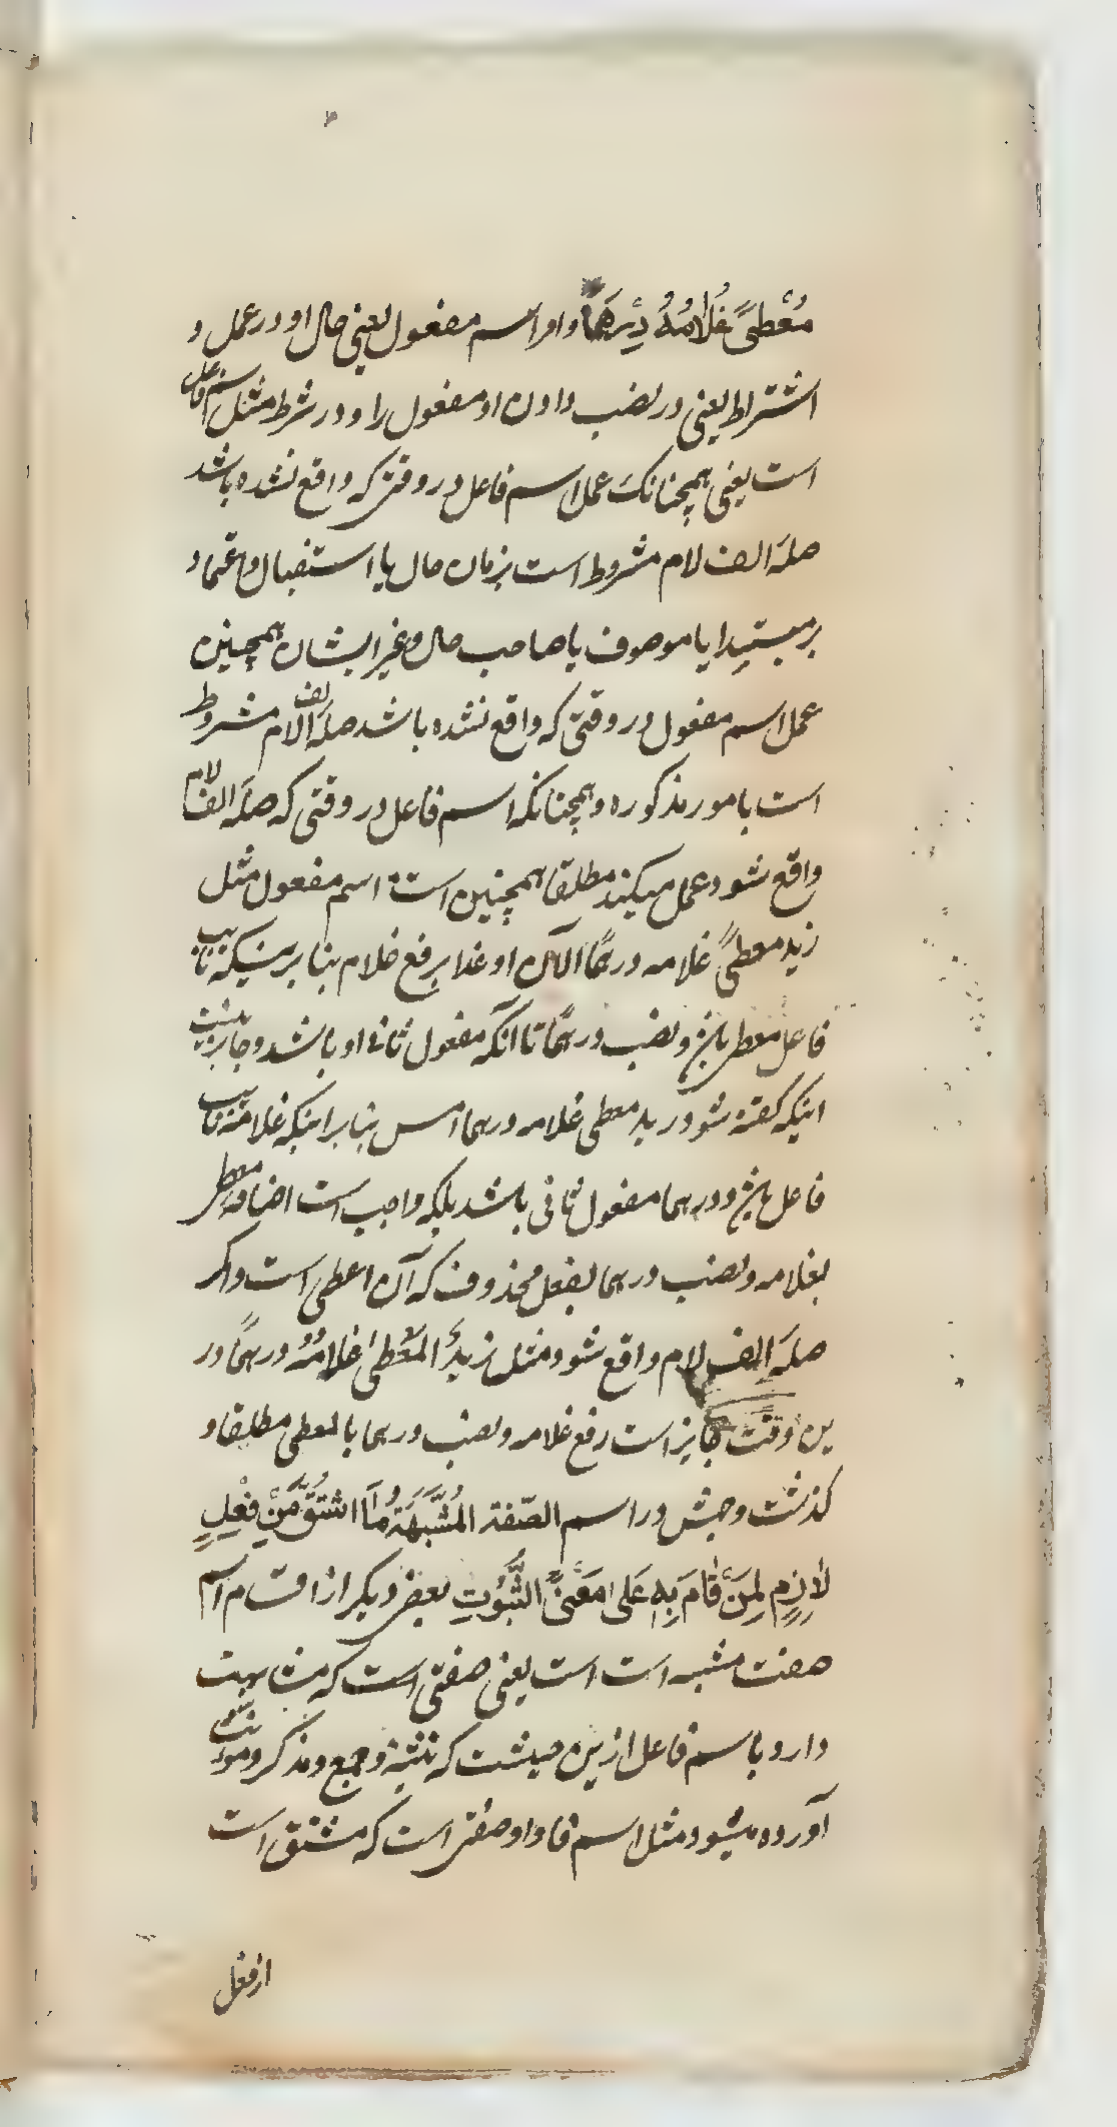 مُعْطیً غُلامُهُ دِرْهَماً و امر اسم مفعول یعنی حال او در عمل و
اشتراط یعنی در نصب دادن او مفعول را و در شرط مثل اسم فاعل
است یعنی همچنانکه عمل اسم فاعل در وقتی که واقع نشده باشد
صله الف لام مشروط است بزمان حال یا استقبال و اعتماد
بر مبتدا یا موصوف یا صاحب حال و غیر ایشان همچنین
عمل اسم مفعول در وقتی که واقع نشده باشد صله الف لام مشروط
است بامور مذکوره و همچنانکه اسم فاعل در وقتی که صله الف لام
واقع شود عمل میکند مطلقا همچنین است اسم مفعول مثل
زید معطیً غلامه درهمًا الآن او غدا برفع غلام بنا بر اینکه نایب
فاعل معطی باشد و نصب درهمًا تا آنکه مفعول ثانی او باشد و جایز نیست
اینکه گفته شود زید معطی غلامه درهما امس بنا بر اینکه غلامه نایب
فاعل باشد و درهما مفعول ثانی باشد بلکه واجب است اضافه معطی
بغلامه و نصب درهما بفعل محذوف که آن اعطی است و اگر
صله الف لام واقع شود مثل زیدُ المُعْطیٰ غلامُهُ درهمًا در
ین وقت جایز است رفع غلامه و نصب درهما بالمعطی مطلقا و
گذشت وجهش در اسم الصّفة المُشَبَّهَةُ مَا اشْتُقَّ مِنْ فِعْلٍ
لازِمٍ لِمَنْ قامَ بِهِ عَلی مَعْنَی الثُّبُوتِ بعض دیگر از اقسام اسم
صفت مشبه است است یعنی صفتی است که مشابهت
دارد باسم فاعل ازین حیثیت که تثنیه و جمع و مذکر و مونث
آورده میشود مثل اسم فا و او صفتی است که مشتق است
از فعل